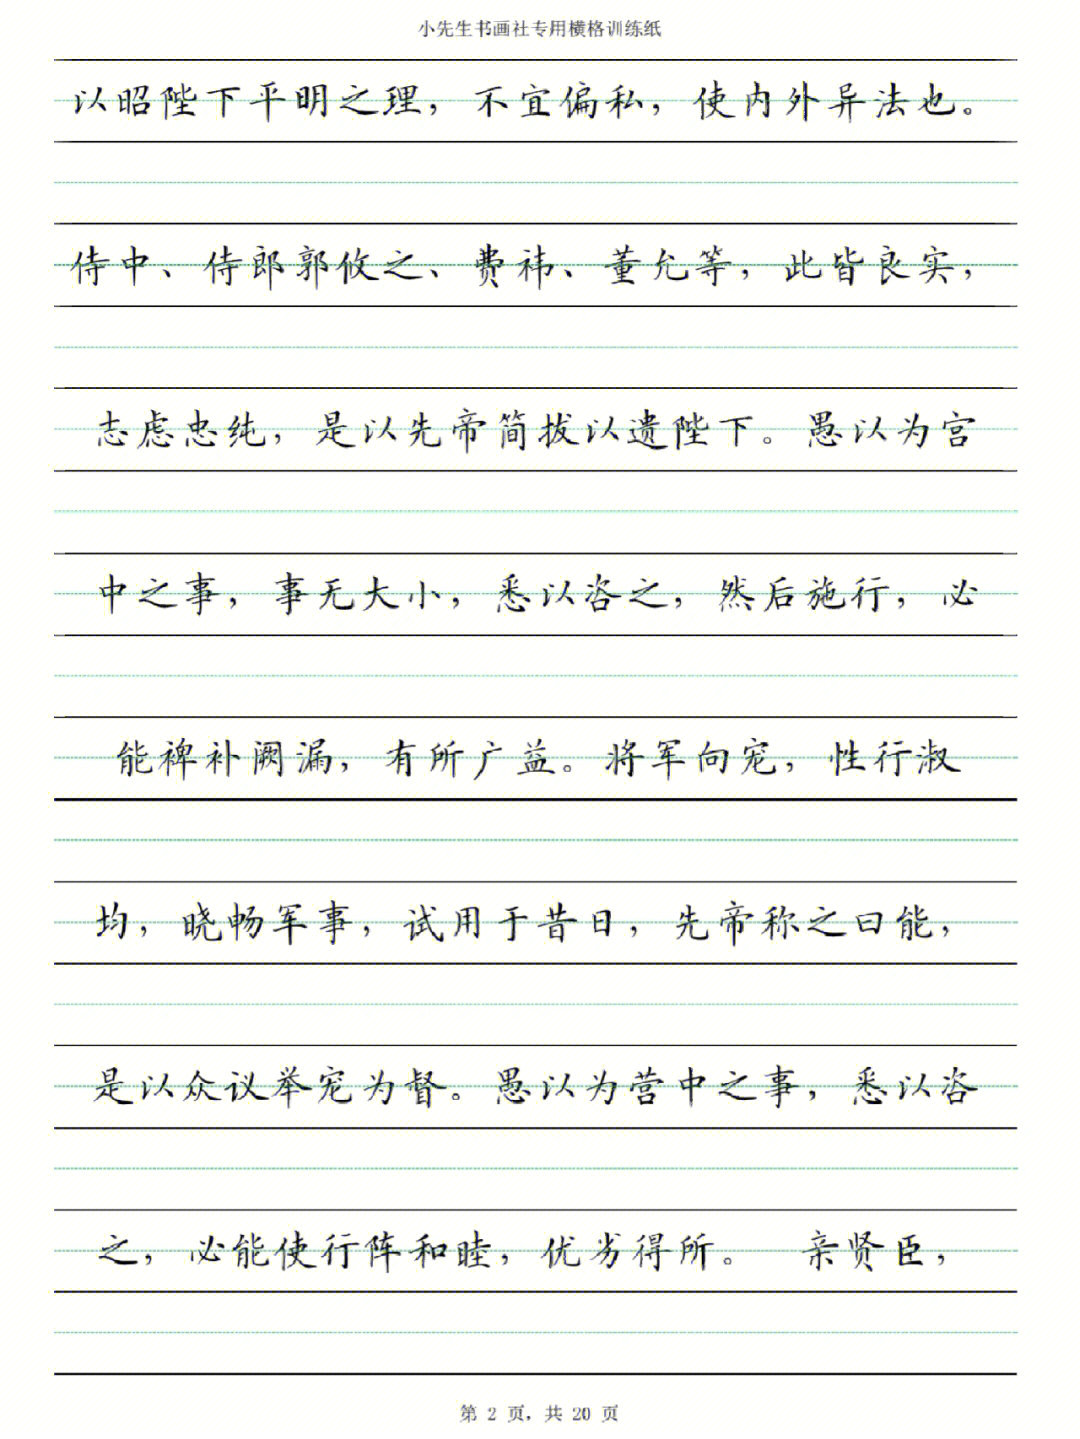 小先生书画社专用横格训练纸
以昭陛下平明之理，不宜偏私，使内外异法也。
侍中、侍郎郭攸之、费祎、董允等，此皆良实，
志虑忠纯，是以先帝简拔以遗陛下。愚以为宫
中之事，事无大小，悉以咨之，然后施行，必
能裨补阙漏，有所广益。将军向宠，性行淑
均，晓畅军事，试用于昔日，先帝称之曰能，
是以众议举宠为督。愚以为营中之事，悉以咨
之，必能使行阵和睦，优劣得所。 亲贤臣，
第 2 页，共 20 页